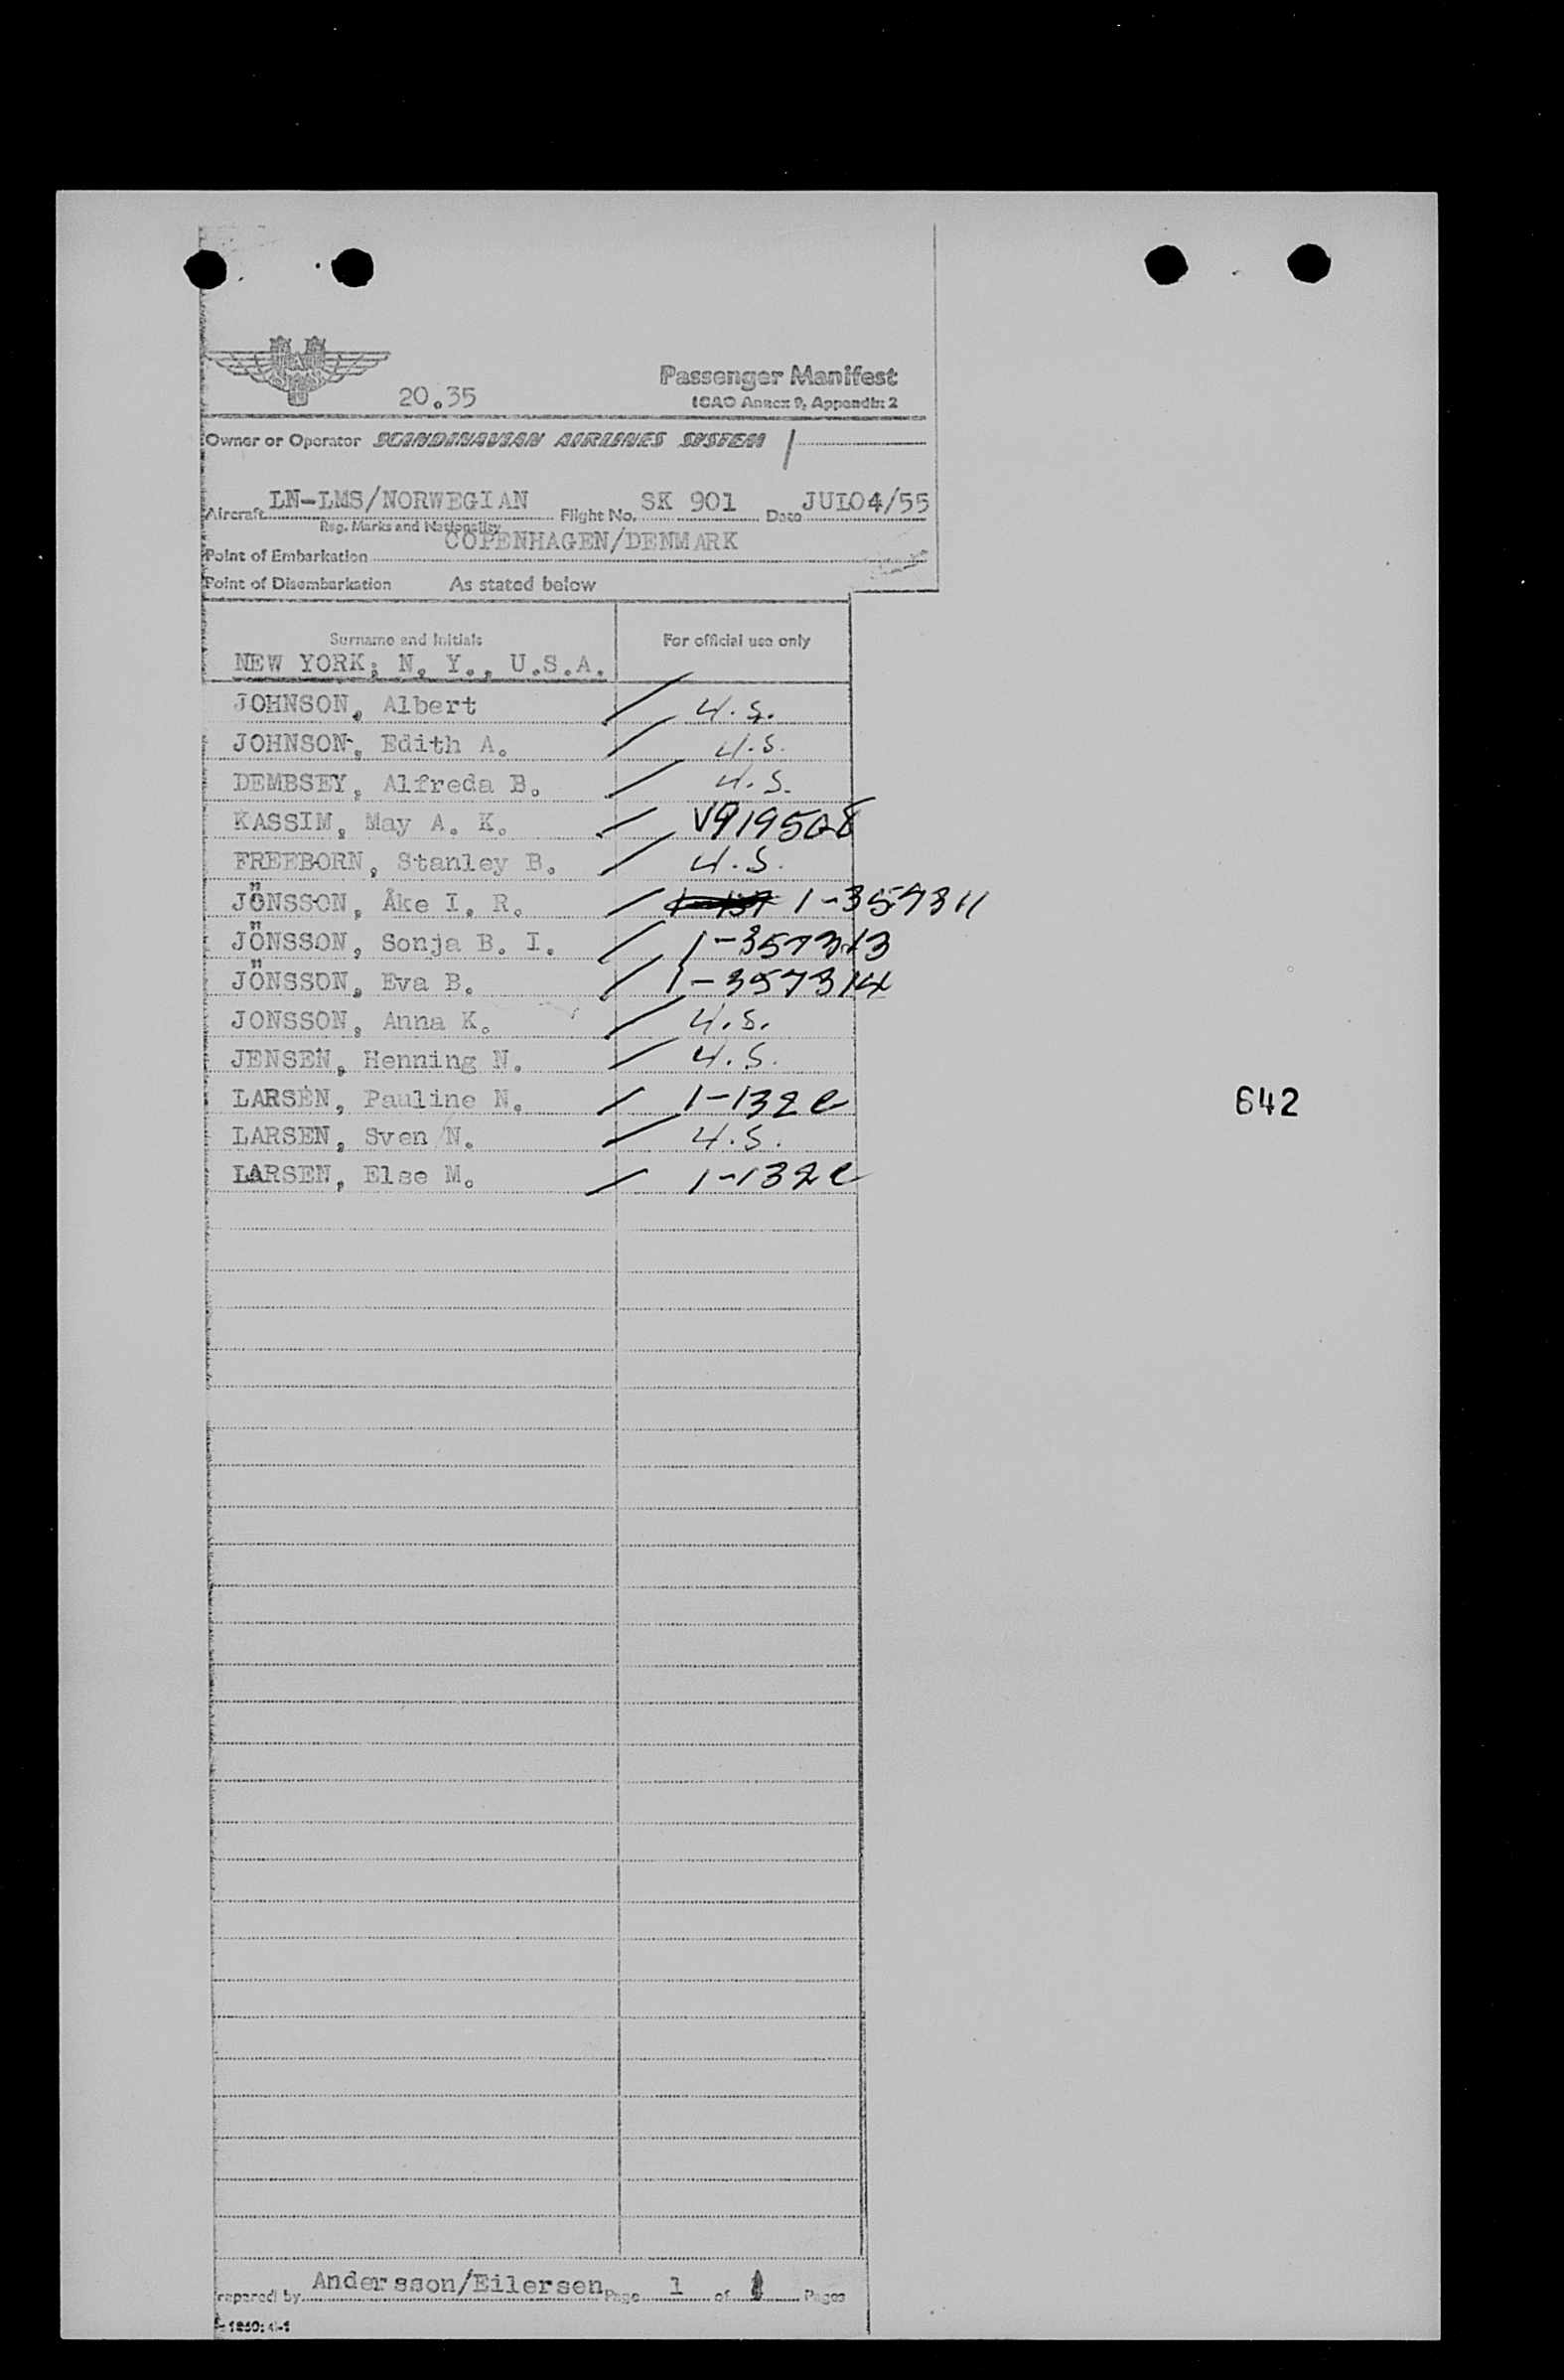 20.35
Passenger Manifest
ICAO Annex 9, Appendix 2
Owner or Operator SCANDINAVIAN AIRLINES SYSTEM
Aircraft LN-LMS/NORWEGIAN Flight No. SK 901 Date JUL04/55
Reg. Marks and Nationality
Point of Embarkation COPENHAGEN/DENMARK
Point of Disembarkation As stated below
Surname and Initials For official use only
NEW YORK, N. Y., U.S.A.
JOHNSON, Albert U.S.
JOHNSON, Edith A. U.S.
DEMBSEY, Alfreda B. U.S.
KASSIM, May A. K. V919508
FREEBORN, Stanley B. U.S.
JÖNSSON, Åke I. R. 1-357311
JÖNSSON, Sonja B. I. 1-357313
JÖNSSON, Eva B. 1-357314
JONSSON, Anna K. U.S.
JENSEN, Henning N. U.S.
LARSEN, Pauline N. 1-132e
642
LARSEN, Sven N. U.S.
LARSEN, Else M. 1-132e
repared by Andersson/Eilersen Page 1 of 1 Pages